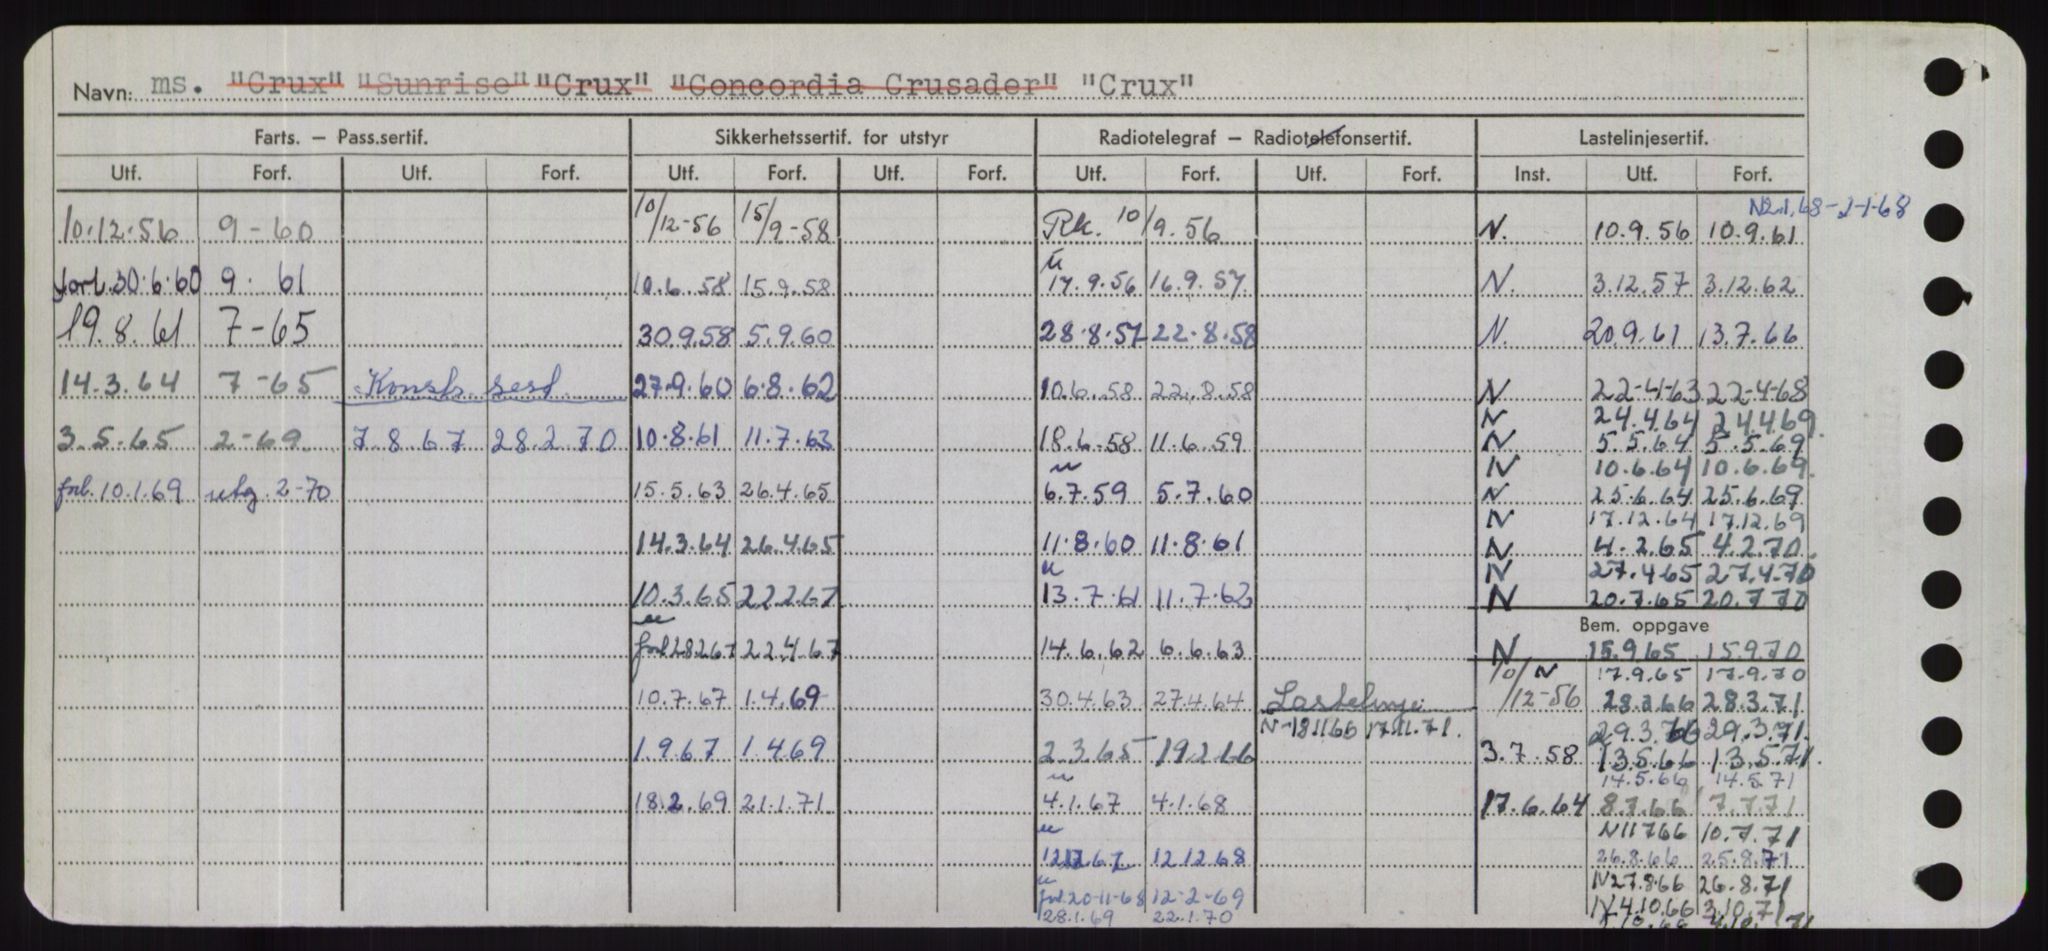 Navn: ms. "Crux" "Sunrise" "Crux" "Concordia Crusader" "Crux"
Farts. — Pass.sertif. Sikkerhetssertif. for utstyr Radiotelegraf — Radiotelefonsertif. Lastelinjesertif.
Utf. Forf. Utf. Forf. Utf. Forf. Utf. Forf. Utf. Forf. Utf. Forf. Inst. Utf. Forf.
N2.1.68-2-1-68
10.12.56 9-60 10/12-56 15/9-58 Rk. 10/9.56 N. 10.9.56 10.9.61
forl. 30.6.60 9. 61 10.6.58 15.9.58 17.9.56 16.9.57 N. 3.12.57 3.12.62
19.8.61 7-65 30.9.58 5.9.60 28.8.57 22.8.58 N. 20.9.61 13.7.66
14.3.64 7-65 Konstr. sert. 27.9.60 6.8.62 10.6.58 22.8.58 N 22-4-63 22-4-68
N 24.4.64 24.4.69
3.5.65 2-69 7.8.67 28.2.70 10.8.61 11.7.63 18.6.58 11.6.59 N 5.5.64 5.5.69
N 10.6.64 10.6.69
forl. 10.1.69 utg. 2-70 15.5.63 26.4.65 6.7.59 5.7.60 N 25.6.64 25.6.69
N 17.12.64 17.12.69
14.3.64 26.4.65 11.8.60 11.8.61 N 4.2.65 4.2.70
N 27.4.65 27.4.70
10.3.65 22.2.67 13.7.61 11.7.62 N 20.7.65 20.7.70
Bem. oppgave
forl 28.2.67 22.4.67 14.6.62 6.6.63 N 15.9.65 15.9.70
N 17.9.65 17.9.70
10.7.67 1.4.69 30.4.63 27.4.64 Lastelinje 10/12-56 28.3.66 28.3.71
N-18.11.66 17.11.71. 29.3.66 29.3.71
1.9.67 1.4.69 2.3.65 19.2.66 3.7.58 13.5.66 13.5.71
14.5.66 14.5.71
18.2.69 21.1.71 4.1.67 4.1.68 17.6.64 8.7.66 7.7.71
N 11.7.66 10.7.71
12.12.67 12.12.68 26.8.66 25.8.71
N 27.8.66 26.8.71
forl 20-11-68 12-2-69 N 4.10.66 3.10.71
28.1.69 22.1.70